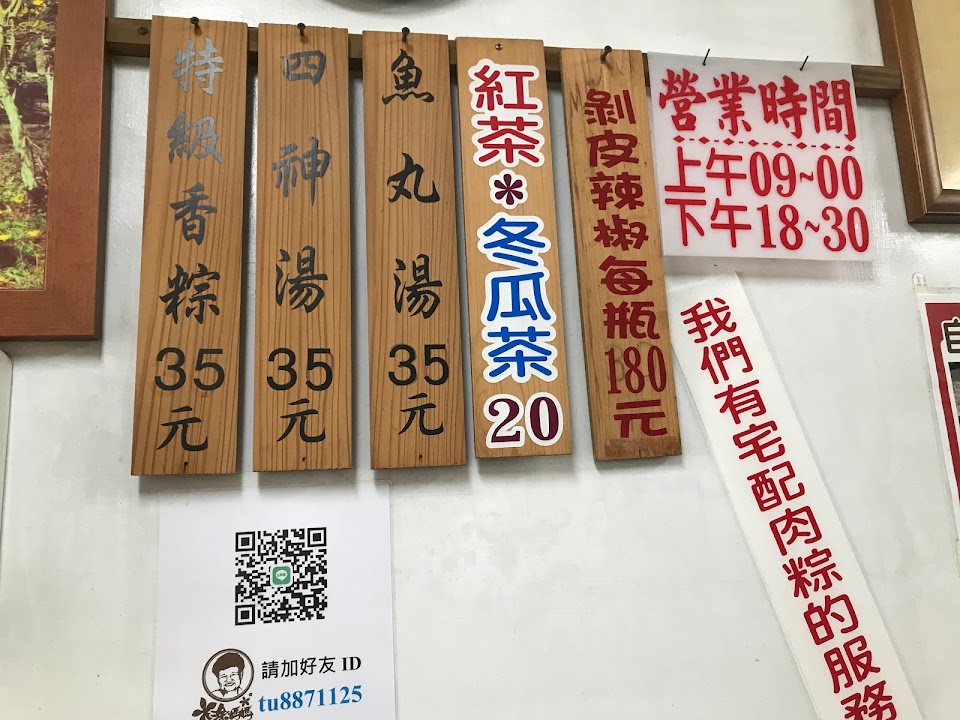 特級香粽35元
四神湯35元
魚丸湯35元
紅茶*冬瓜茶20
剝皮辣椒每瓶180元
營業時間
上午09~00
下午18~30
我們有宅配肉粽的服務
請加好友 ID
tu8871125